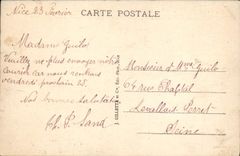 Nice 23 Fevrier
CARTE POSTALE
Madame Guilo
Veuillez ne plus envoyer notre
courrier car nous rentrons
vendredi prochain 25.
Nos bonnes salutations
Ch. P. Sand
J. GILETTA
Monsieur et Mme Guilo
64 rue Chaptal
Levallois Perret
Seine